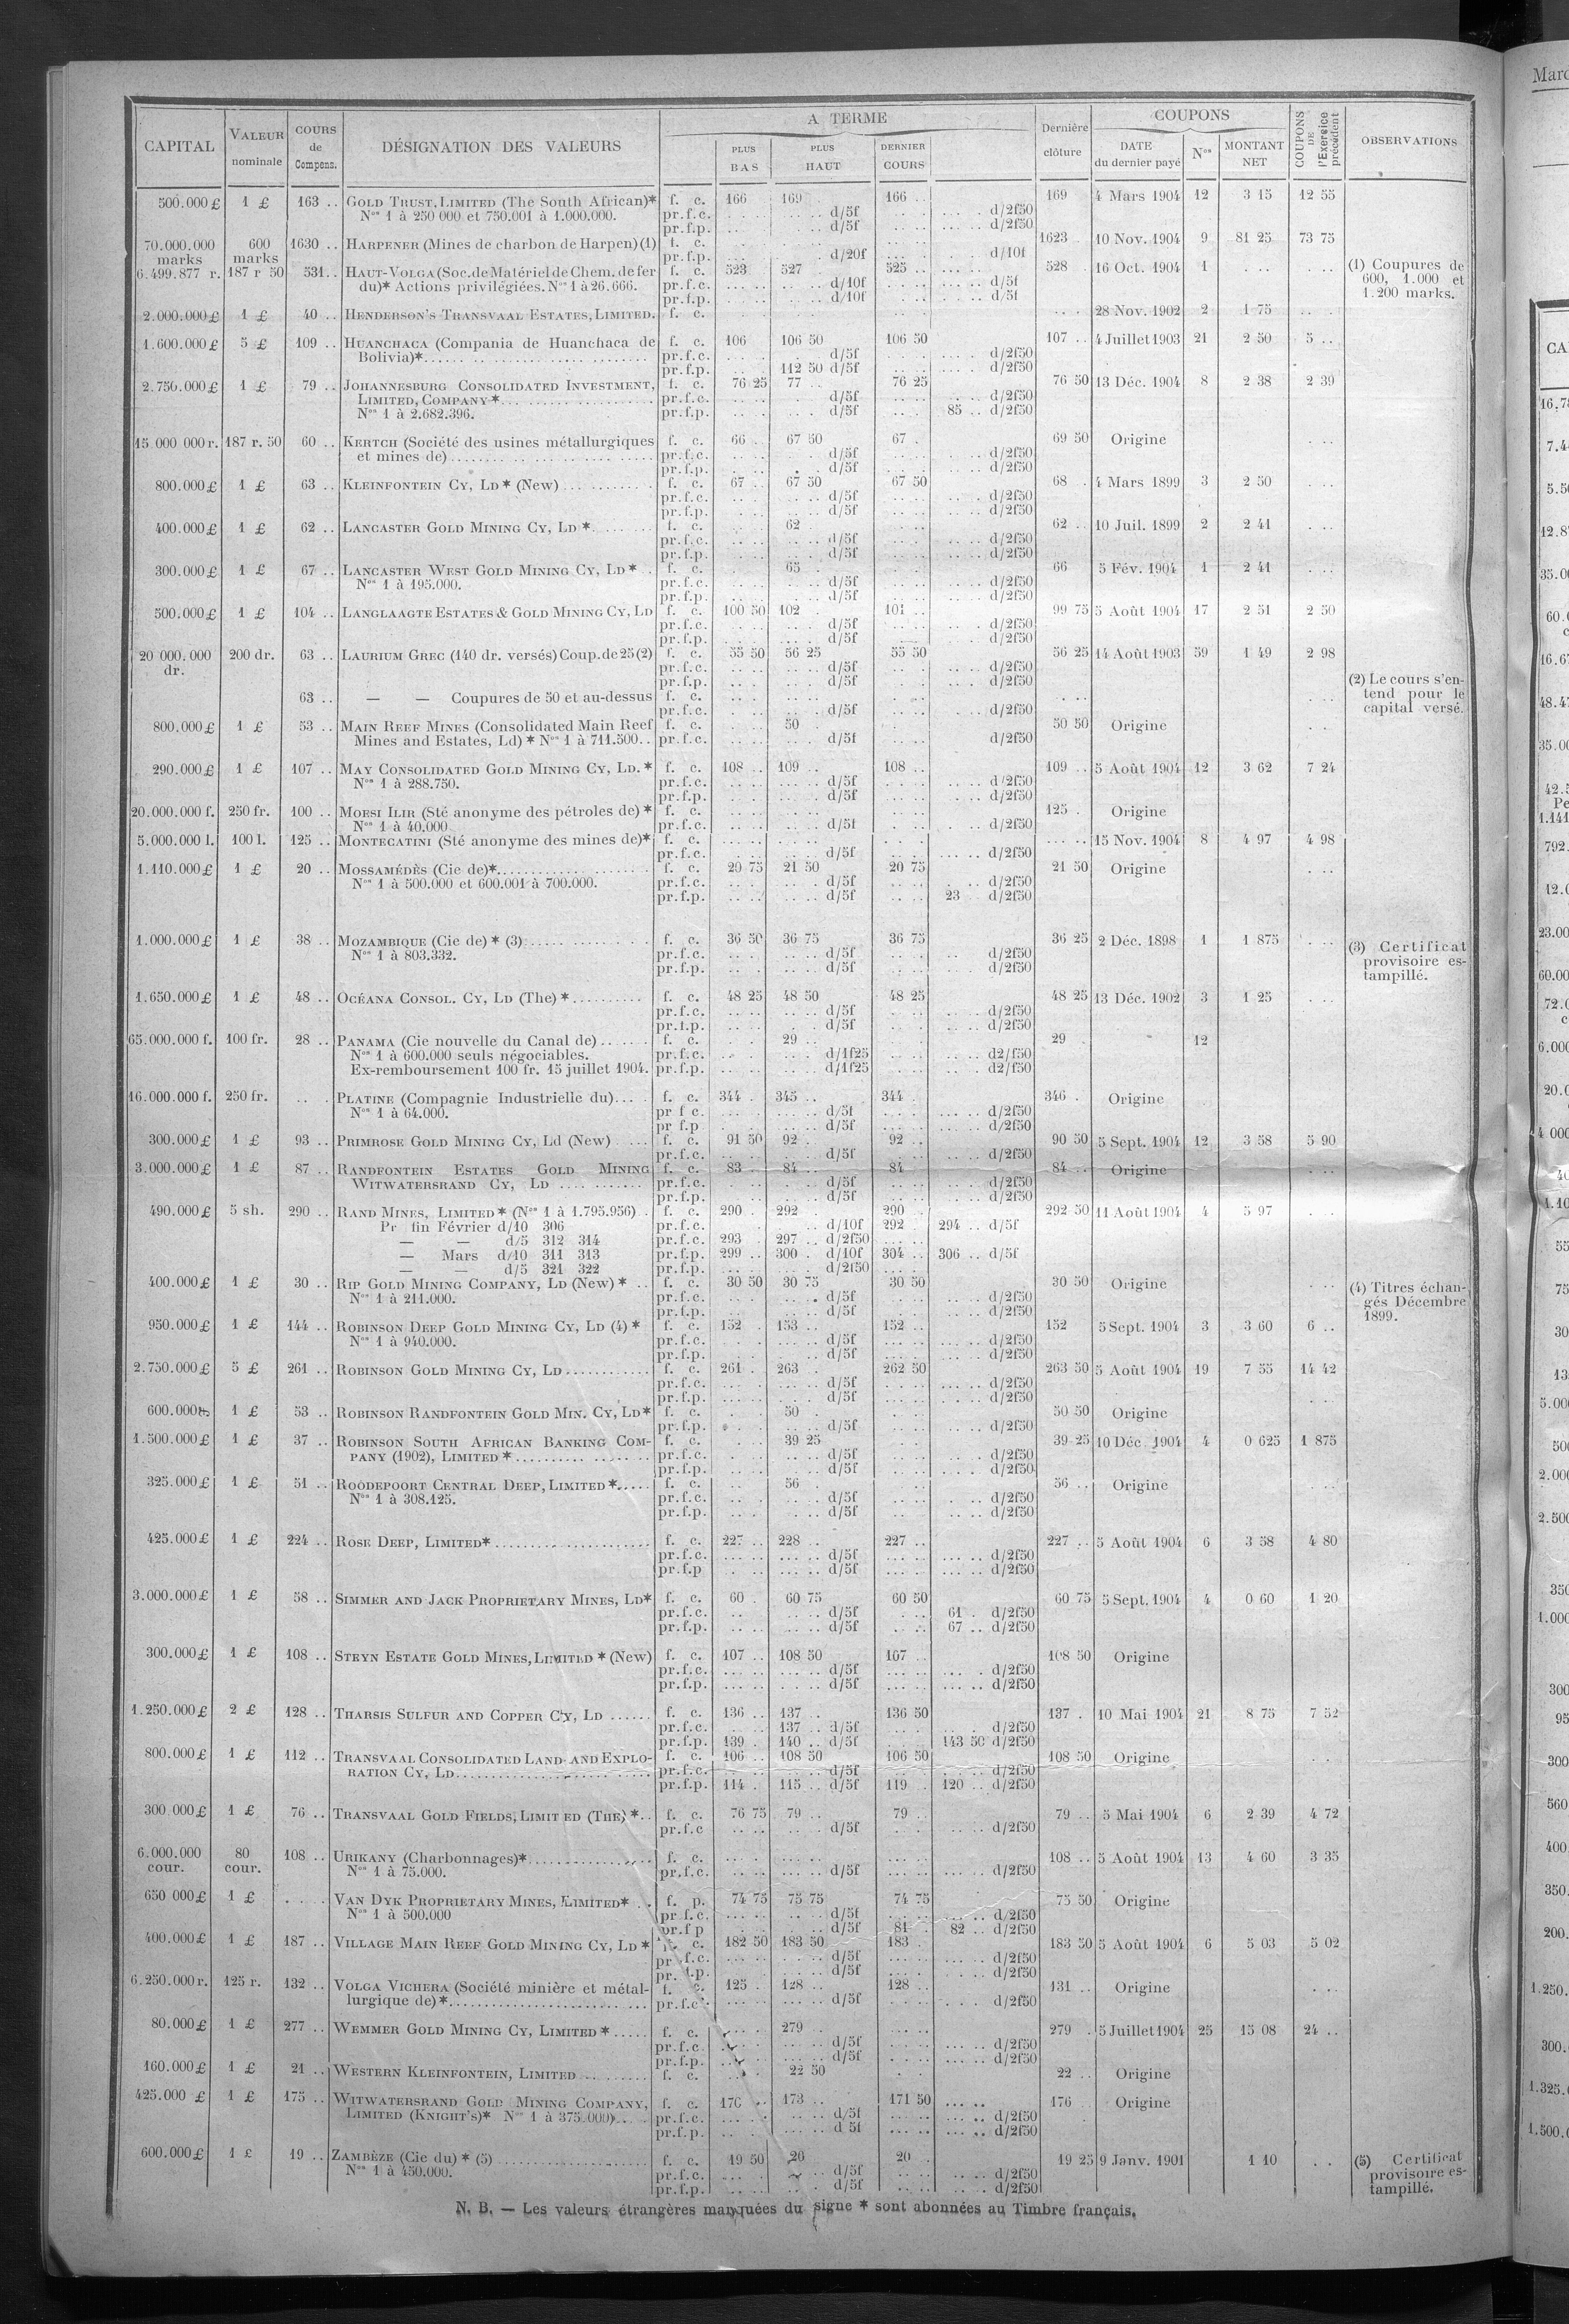 CAPITAL VALEUR nominale COURS de Compens. DÉSIGNATION DES VALEURS A TERME PLUS BAS PLUS HAUT DERNIER COURS Dernière clôture COUPONS DATE du dernier payé Nos MONTANT NET COUPONS DE l'Exercice précédent OBSERVATIONS
500.000 £ 1 £ 163 .. GOLD TRUST, LIMITED (The South African)* f. c. 166 169 166 .. 169 4 Mars 1904 12 3 15 12 55
Nos 1 à 250 000 et 750.001 à 1.000.000. pr.f.c. d/5f d/2f50
pr.f.p. d/5f d/2f50
70.000.000 marks 600 marks 1630 .. HARPENER (Mines de charbon de Harpen) (1) f. c. 1623 10 Nov. 1904 9 81 25 73 75
pr.f.p. d/20f d/10f
6.499.877 r. 187 r 50 531.. HAUT-VOLGA (Soc. de Matériel de Chem. de fer f. c. 523 527 525 .. 528 16 Oct. 1904 1 (1) Coupures de
du)* Actions privilégiées. Nos 1 à 26.666. pr.f.c. d/10f d/5f 600, 1.000 et
pr.f.p. d/10f d/5f 1.200 marks.
2.000.000 £ 1 £ 40 .. HENDERSON'S TRANSVAAL ESTATES, LIMITED. f. c. 28 Nov. 1902 2 1 75
1.600.000 £ 5 £ 109 .. HUANCHACA (Compania de Huanchaca de f. c. 106 106 50 106 50 107 .. 4 Juillet 1903 21 2 50 5 ..
Bolivia)* pr.f.c. d/5f d/2f50
pr.f.p. 112 50 d/5f d/2f50
2.750.000 £ 1 £ 79 .. JOHANNESBURG CONSOLIDATED INVESTMENT, f. c. 76 25 77 .. 76 25 76 50 13 Déc. 1904 8 2 38 2 39
LIMITED, COMPANY* pr.f.c. d/5f d/2f50
Nos 1 à 2.682.396. pr.f.p. d/5f 85 .. d/2f50
15.000.000 r. 187 r. 50 60 .. KERTCH (Société des usines métallurgiques f. c. 66 . 67 50 67 . 69 50 Origine
et mines de) pr.f.c. d/5f d/2f50
pr.f.p. d/5f d/2f50
800.000 £ 1 £ 63 .. KLEINFONTEIN CY, LD* (New) f. c. 67 .. 67 50 67 50 68 . 4 Mars 1899 3 2 50
pr.f.c. d/5f d/2f50
pr.f.p. d/5f d/2f50
400.000 £ 1 £ 62 .. LANCASTER GOLD MINING CY, LD* f. c. 62 .. 62 .. 10 Juil. 1899 2 2 41
pr.f.c. d/5f d/2f50
pr.f.p. d/5f d/2f50
300.000 £ 1 £ 67 .. LANCASTER WEST GOLD MINING CY, LD* f. c. 65 . 66 5 Fév. 1904 1 2 41
Nos 1 à 195.000. pr.f.c. d/5f d/2f50
pr.f.p. d/5f d/2f50
500.000 £ 1 £ 104 .. LANGLAAGTE ESTATES & GOLD MINING CY, LD f. c. 100 50 102 . 101 .. 99 75 5 Août 1904 17 2 51 2 50
pr.f.c. d/5f d/2f50
pr.f.p. d/5f d/2f50
20 000.000 dr. 200 dr. 63 .. LAURIUM GREC (140 dr. versés) Coup. de 25 (2) f. c. 55 50 56 25 55 50 56 25 14 Août 1903 59 1 49 2 98
pr.f.c. d/5f d/2f50
pr.f.p. d/5f d/2f50 (2) Le cours s'en-
63 .. — — Coupures de 50 et au-dessus f. c. tend pour le
pr.f.c. d/5f d/2f50 capital versé.
800.000 £ 1 £ 53 .. MAIN REEF MINES (Consolidated Main Reef f. c. 50 . 50 50 Origine
Mines and Estates, Ld)* Nos 1 à 711.500.. pr.f.c. d/5f d/2f50
290.000 £ 1 £ 107 .. MAY CONSOLIDATED GOLD MINING CY, LD.* f. c. 108 .. 109 .. 108 .. 109 .. 5 Août 1904 12 3 62 7 24
Nos 1 à 288.750. pr.f.c. d/5f d/2f50
pr.f.p. d/5f d/2f50
20.000.000 f. 250 fr. 100 .. MOESI ILIR (Sté anonyme des pétroles de)* f. c. 125 . Origine
Nos 1 à 40.000 pr.f.c. d/5f d/2f50
5.000.000 l. 100 l. 125 .. MONTECATINI (Sté anonyme des mines de)* f. c. 15 Nov. 1904 8 4 97 4 98
pr.f.c. d/5f d/2f50
1.110.000 £ 1 £ 20 .. MOSSAMÉDÈS (Cie de)* f. c. 20 75 21 50 20 75 21 50 Origine
Nos 1 à 500.000 et 600.001 à 700.000. pr.f.c. d/5f d/2f50
pr.f.p. d/5f 23 d/2f50
1.000.000 £ 1 £ 38 .. MOZAMBIQUE (Cie de)* (3) f. c. 36 50 36 75 36 75 36 25 2 Déc. 1898 1 1 875 (3) Certificat
Nos 1 à 803.332. pr.f.c. d/5f d/2f50 provisoire es-
pr.f.p. d/5f d/2f50 tampillé.
1.650.000 £ 1 £ 48 .. OCÉANA CONSOL. CY, LD (The)* f. c. 48 25 48 50 48 25 48 25 13 Déc. 1902 3 1 25
pr.f.c. d/5f d/2f50
pr.f.p. d/5f d/2f50
65.000.000 f. 100 fr. 28 .. PANAMA (Cie nouvelle du Canal de) f. c. 29 .. 29 . 12
Nos 1 à 600.000 seuls négociables. pr.f.c. d/1f25 d2/f50
Ex-remboursement 100 fr. 15 juillet 1904. pr.f.p. d/1f25 d2/f50
16.000.000 f. 250 fr. PLATINE (Compagnie Industrielle du) f. c. 344 . 345 .. 344 . 346 . Origine
Nos 1 à 64.000. pr f c. d/5f d/2f50
pr f.p d/5f d/2f50
300.000 £ 1 £ 93 .. PRIMROSE GOLD MINING CY, Ld (New) f. c. 91 50 92 . 92 .. 90 50 5 Sept. 1904 12 3 58 5 90
pr.f.c. d/5f d/2f50
3.000.000 £ 1 £ 87 .. RANDFONTEIN ESTATES GOLD MINING f. c. 83 .. 84 .. 84 84 .. Origine
WITWATERSRAND CY, LD pr.f.c. d/5f d/2f50
pr.f.p. d/5f d/2f50
490.000 £ 5 sh. 290 .. RAND MINES, LIMITED* (Nos 1 à 1.795.956) f. c. 290 . 292 . 290 .. 292 50 11 Août 1904 4 5 97
Pr fin Février d/10 306 pr.f.c. d/10f 292 . 294 .. d/5f
— — d/5 312 314 pr.f.c. 293 . 297 .. d/2f50
— Mars d/10 311 313 pr.f.p. 299 .. 300 . d/10f 304 .. 306 .. d/5f
— — d/5 321 322 pr.f.p. d/2f50
400.000 £ 1 £ 30 .. RIP GOLD MINING COMPANY, LD (New)* f. c. 30 50 30 75 30 50 30 50 Origine (4) Titres échan-
Nos 1 à 211.000. pr.f.c. d/5f d/2f50 gés Décembre
pr.f.p. d/5f d/2f50 1899.
950.000 £ 1 £ 144 .. ROBINSON DEEP GOLD MINING CY, LD (4)* f. c. 152 . 153 .. 152 .. 152 5 Sept. 1904 3 3 60 6 ..
Nos 1 à 940.000. pr.f.c. d/5f d/2f50
pr.f.p. d/5f d/2f50
2.750.000 £ 5 £ 261 .. ROBINSON GOLD MINING CY, LD f. c. 261 . 263 . 262 50 263 50 5 Août 1904 19 7 55 14 42
pr.f.c. d/5f d/2f50
pr.f.p. d/5f d/2f50
600.000 1 £ 53 .. ROBINSON RANDFONTEIN GOLD MIN. CY, LD* f. c. 50 . 50 50 Origine
pr.f.p. d/5f d/2f50
1.500.000 £ 1 £ 37 .. ROBINSON SOUTH AFRICAN BANKING COM- f. c. 39 25 39 25 10 Déc. 1904 4 0 625 1 875
PANY (1902), LIMITED* pr.f.c. d/5f d/2f50
pr.f.p. d/5f d/2f50
325.000 £ 1 £ 51 .. ROODEPOORT CENTRAL DEEP, LIMITED* f. c. 56 . 56 .. Origine
Nos 1 à 308.125. pr.f.c. d/5f d/2f50
pr.f.p. d/5f d/2f50
425.000 £ 1 £ 224 .. ROSE DEEP, LIMITED* f. c. 227 .. 228 .. 227 .. 227 .. 5 Août 1904 6 3 58 4 80
pr.f.c. d/5f d/2f50
pr.f.p d/5f d/2f50
3.000.000 £ 1 £ 58 .. SIMMER AND JACK PROPRIETARY MINES, LD* f. c. 60 . 60 75 60 50 60 75 5 Sept. 1904 4 0 60 1 20
pr.f.c. d/5f 61 . d/2f50
pr.f.p. d/5f 67 .. d/2f50
300.000 £ 1 £ 108 .. STEYN ESTATE GOLD MINES, LIMITED* (New) f. c. 107 .. 108 50 107 .. 108 50 Origine
pr.f.c. d/5f d/2f50
pr.f.p. d/5f d/2f50
1.250.000 £ 2 £ 128 .. THARSIS SULFUR AND COPPER CY, LD f. c. 136 .. 137 .. 136 50 137 . 10 Mai 1904 21 8 75 7 52
pr.f.c. 137 .. d/5f d/2f50
pr.f.p. 139 . 140 .. d/5f 143 50 d/2f50
800.000 £ 1 £ 112 .. TRANSVAAL CONSOLIDATED LAND AND EXPLO- f. c. 106 .. 108 50 106 50 108 50 Origine
RATION CY, LD pr.f.c. d/5f d/2f50
pr.f.p. 114 . 115 .. d/5f 119 . 120 .. d/2f50
300.000 £ 1 £ 76 .. TRANSVAAL GOLD FIELDS, LIMITED (THE)* f. c. 76 75 79 .. 79 .. 79 .. 5 Mai 1904 6 2 39 4 72
pr.f.c d/5f d/2f50
6.000.000 cour. 80 cour. 108 .. URIKANY (Charbonnages)* f. c. 108 .. 5 Août 1904 13 4 60 3 35
Nos 1 à 75.000. pr.f.c. d/5f d/2f50
650 000 £ 1 £ VAN DYK PROPRIETARY MINES, LIMITED* f. p. 74 75 75 75 74 75 75 50 Origine
Nos 1 à 500.000 pr f.c. d/5f d/2f50
pr.f p d/5f 81 . 82 .. d/2f50
400.000 £ 1 £ 187 .. VILLAGE MAIN REEF GOLD MINING CY, LD* f. c. 182 50 183 50 183 . 183 50 5 Août 1904 6 5 03 5 02
pr.f.c. d/5f d/2f50
pr.f.p. d/5f d/2f50
6.250.000 r. 125 r. 132 .. VOLGA VICHERA (Société minière et métal- f. c. 125 . 128 .. 128 .. 131 .. Origine
lurgique de)* pr.f.c. d/5f d/2f50
80.000 £ 1 £ 277 .. WEMMER GOLD MINING CY, LIMITED* f. c. 279 . 279 . 5 Juillet 1904 25 15 08 24 ..
pr.f.c. d/5f d/2f50
pr.f.p. d/5f d/2f50
160.000 £ 1 £ 21 .. WESTERN KLEINFONTEIN, LIMITED f. c. 22 50 22 .. Origine
425.000 £ 1 £ 175 .. WITWATERSRAND GOLD MINING COMPANY, f. c. 170 .. 173 .. 171 50 176 Origine
LIMITED (KNIGHT'S)* Nos 1 à 375.000) pr.f.c. d/5f d/2f50
pr.f.p. d 5f d/2f50
600.000 £ 1 £ 19 .. ZAMBÈZE (Cie du)* (5) f. c. 19 50 20 20 . 19 25 9 Janv. 1901 1 10 (5) Certificat
Nos 1 à 450.000. pr.f.c. d/5f d/2f50 provisoire es-
pr.f.p. d/5f d/2f50 tampillé.
N. B. — Les valeurs étrangères marquées du signe * sont abonnées au Timbre français.